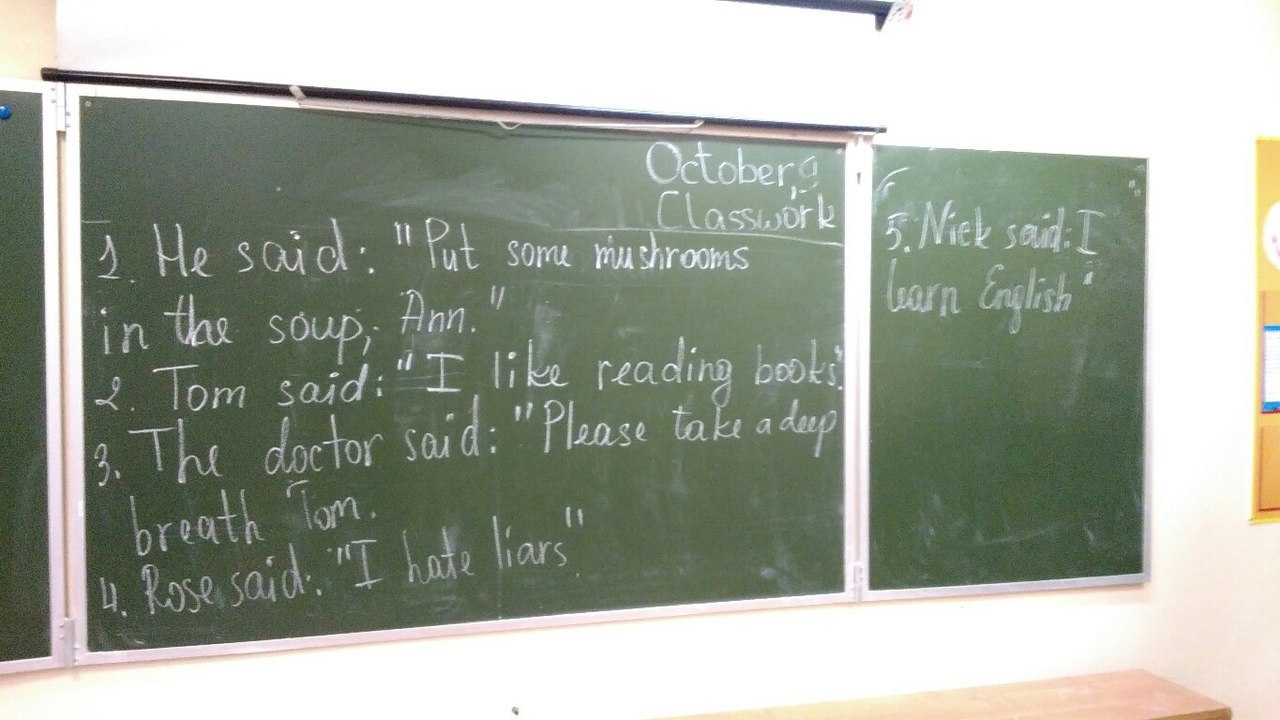 October, 9
Classwork
1. He said: "Put some mushrooms
in the soup, Ann."
2. Tom said: "I like reading books".
3. The doctor said: "Please take a deep
breath Tom.
4. Rose said: "I hate liars".
5. Nick said: I
learn English"